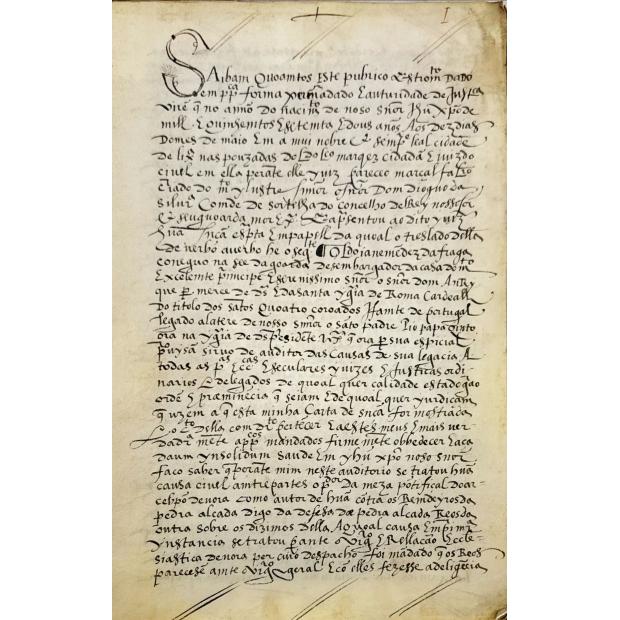 I
Saibam Quoamtos este publico estromto dado
em pca forma per mãdado E auturidade de Justiça
virẽ q̃ no anno do nacimto de noso Sñor Jhũ Xpõ de
mill E quinhemtos E setemta E dous anos Aos dez dias
do mes de maio Em a mui nobre E sempre leal cidade
de lixª nas pouzadas do Ldo marquez cidadã E juiz do
civel em ella perãte elle yuiz pareceo marcal
criado do mto ylustre Sñnor o Sñor Dom Dioguo da
silva Comde de Sortelha do concelho delRey nosso sñor
E seu guoarda mor E Apresentou ao dito yuiz
hũa Sñca espta Em papell da quoal o treslado della
E de verbo a verbo he o segte ¶ O Ldo joane mẽdez da fraga
coneguo na see da goarda desembargador da casa do m
Excelemte prĩncipe E serenissimo Sñor o Sñor dom Anrique
que per merce de Ds E da santa Ygrª de Roma Cardeal
do titolo dos sãtos Quoatro coroados Ifamte de portugal
legado alatere de nosso Sñnor o Sãto padre Pio papa quinto
ora na ygrª de Ds presidẽte q̃ ora per sua espicial
sirvo de auditor das Causas de sua legacia A
todas as pas Ecas E seculares yuizes E justicas ordi
narios E delegados de quoal quer calidade estado grao
ordẽ E preeminẽcia q̃ seiam E de quoal quer yurdicam
q̃ uzem a q̃ esta minha Carta de sñca for mostrada
E o cto della com drto pertẽcer E a estes meus E mais ver
dadrª mẽte apcos mãdados firme mẽte obbedecer E a ca
da um ynsolidum saude Em yhũ xpõ noso sñor
Faco saber q̃ perãte mim neste auditorio se tratou hũa
causa civel amtre partes o pdor da meza põtifical do ar
cebpdo devora como autor de hũa E cõtra os Remdeyros da
pedra alcada digo da defesa da pedra alcada Reos da
outra sobre os dizimos della A quoal causa Em primrª
ynstancia se tratou perante o vigro E Rellacão Eccle
siastica devora por cuio despacho foi mãdado q̃ os Reos
parecesẽ amte o vigro geral E cõ elles fezesse a deligẽcia